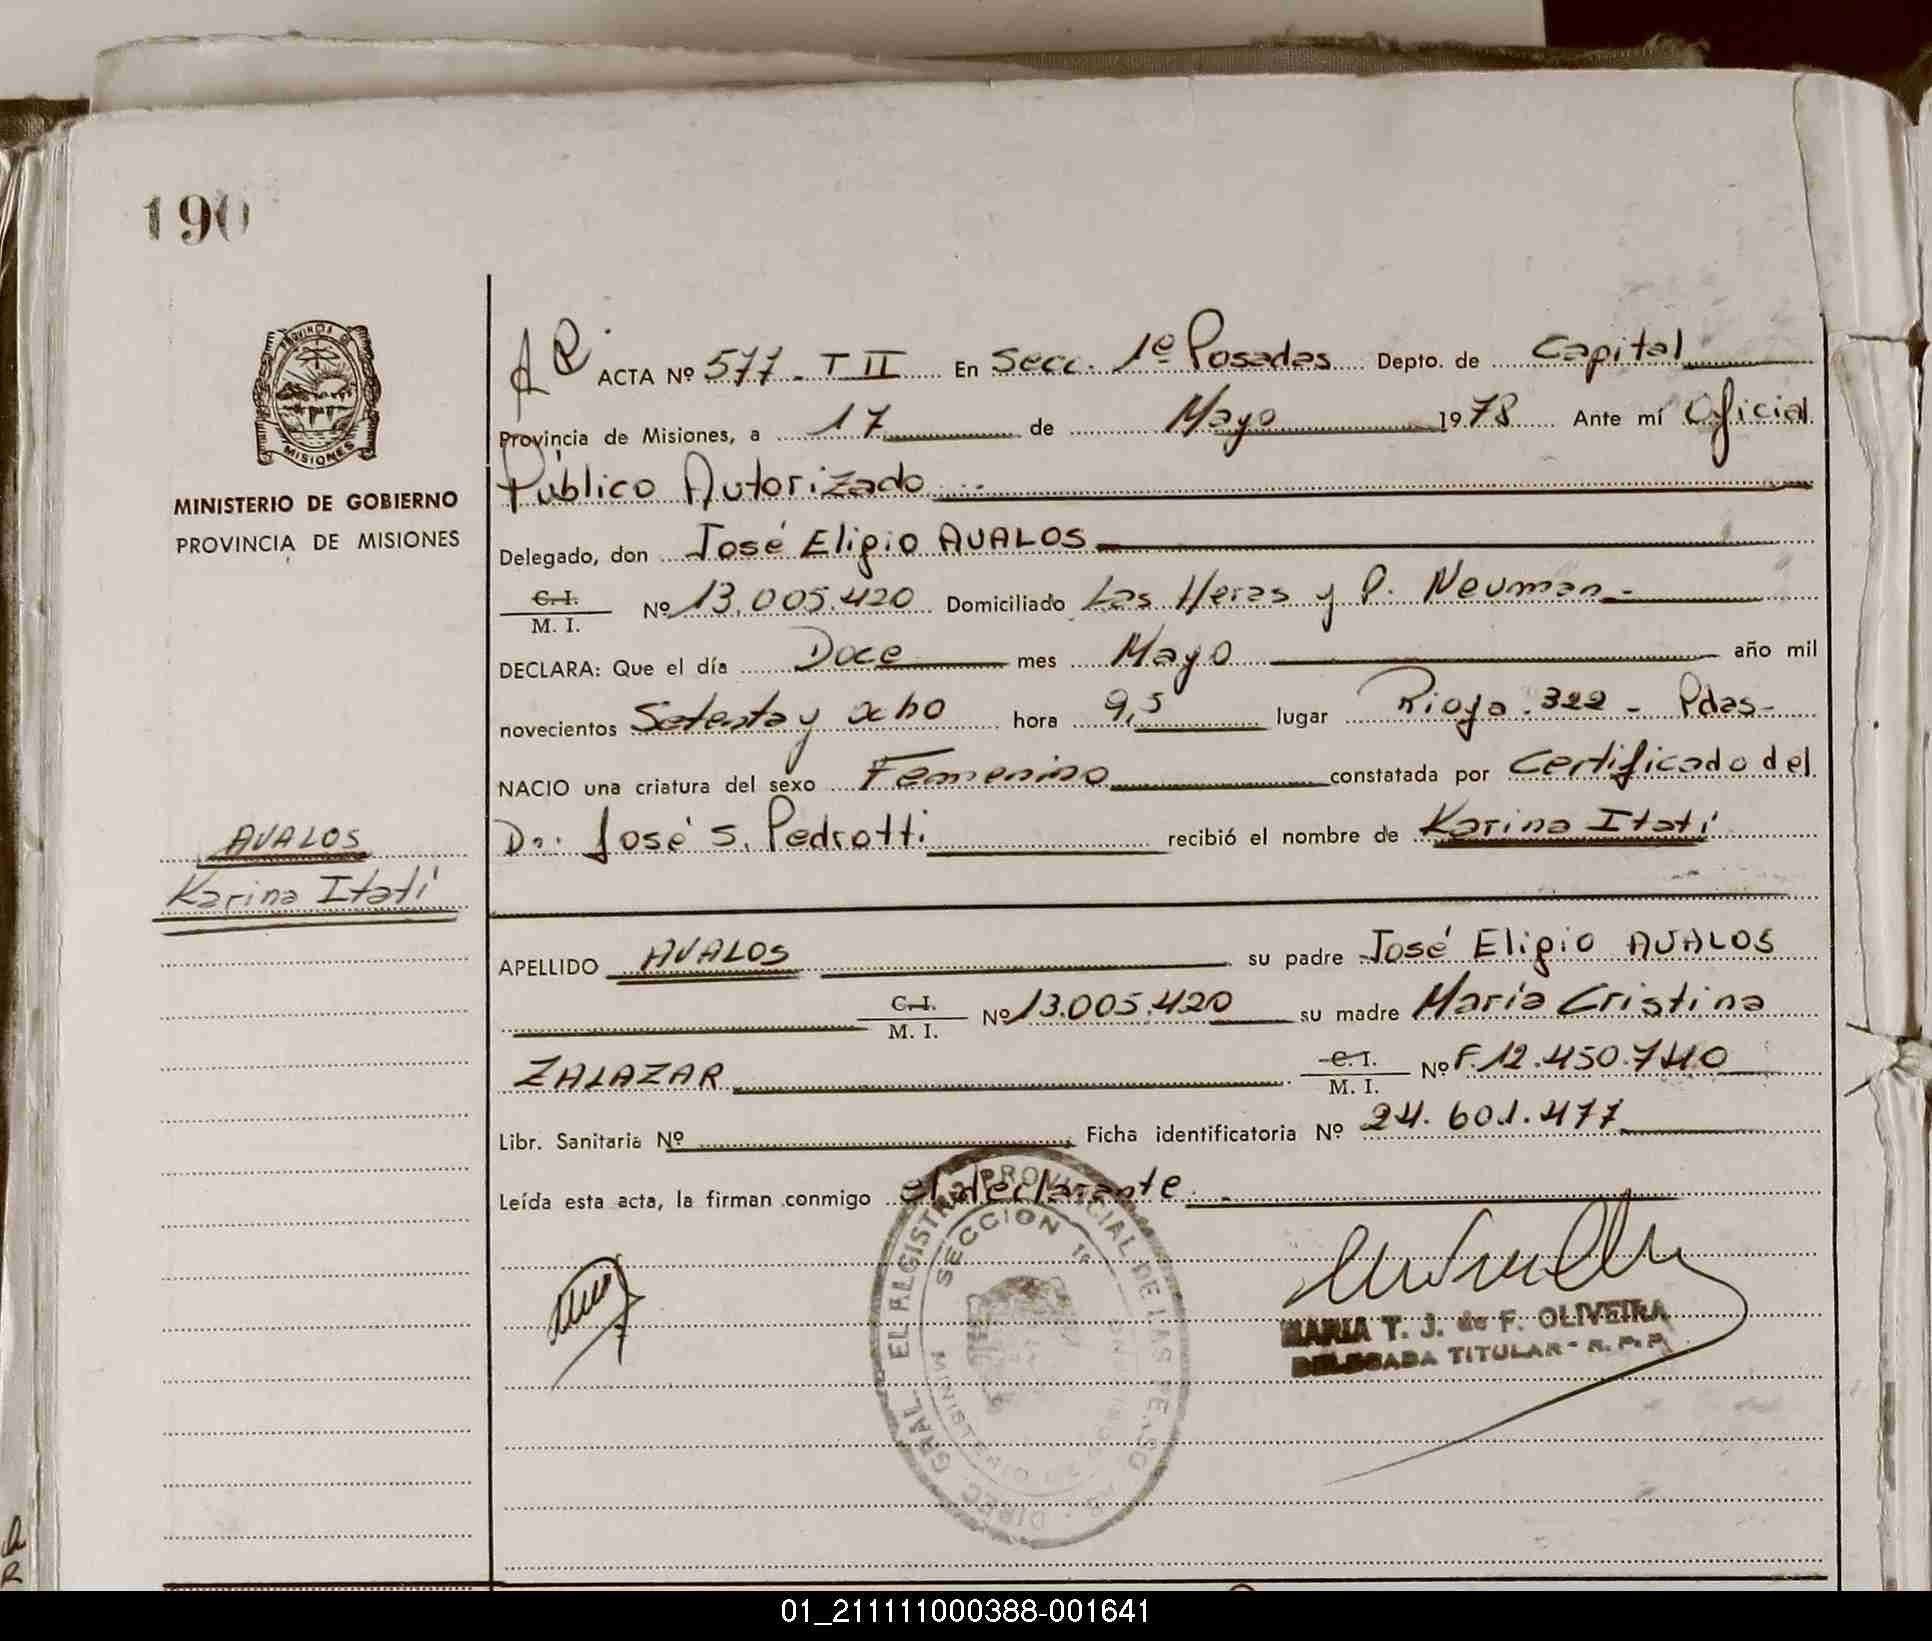 190
PROVINCIA D
MISIONES
MINISTERIO DE GOBIERNO
PROVINCIA DE MISIONES
AVALOS
Karina Itatí
ACTA Nº 577. T II En Secc. 1ª Posadas Depto. de Capital
Provincia de Misiones, a 17 de Mayo 1978 Ante mí Oficial
Público Autorizado
Delegado, don José Eligio AVALOS
C. I. / M. I. Nº 13.005.420 Domiciliado Las Heras y P. Neuman -
DECLARA: Que el día Doce mes Mayo año mil
novecientos Setenta y ocho hora 9,5 lugar Rioja 322 - Pdas-
NACIO una criatura del sexo Femenino constatada por Certificado del
Dr. José S. Pedrotti recibió el nombre de Karina Itatí
APELLIDO AVALOS su padre José Eligio AVALOS
C. I. / M. I. Nº 13.005.420 su madre María Cristina
ZALAZAR C. I. / M. I. Nº F. 12.450.740
Libr. Sanitaria Nº Ficha identificatoria Nº 24.601.477
Leída esta acta, la firman conmigo el declarante.
SECCION 1ª
MARIA T. J. de F. OLIVEIRA
DELEGADA TITULAR - R. P. P.
01_211111000388-001641